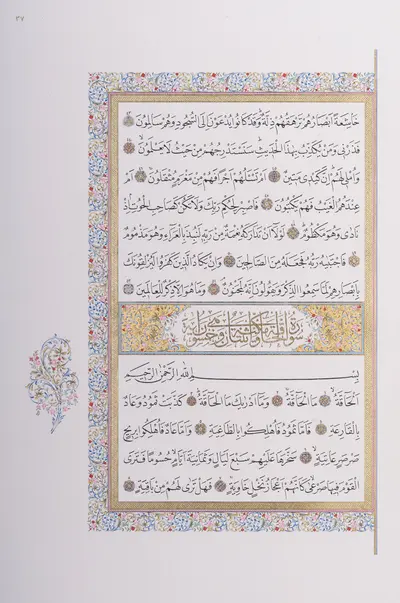 ٣٧
خَاشِعَةً أَبْصَارُهُمْ تَرْهَقُهُمْ ذِلَّةٌ وَقَدْ كَانُوا يُدْعَوْنَ إِلَى السُّجُودِ وَهُمْ سَالِمُونَ
فَذَرْنِي وَمَنْ يُكَذِّبُ بِهَذَا الْحَدِيثِ سَنَسْتَدْرِجُهُمْ مِنْ حَيْثُ لَا يَعْلَمُونَ
وَأُمْلِي لَهُمْ إِنَّ كَيْدِي مَتِينٌ أَمْ تَسْأَلُهُمْ أَجْرًا فَهُمْ مِنْ مَغْرَمٍ مُثْقَلُونَ أَمْ
عِنْدَهُمُ الْغَيْبُ فَهُمْ يَكْتُبُونَ فَاصْبِرْ لِحُكْمِ رَبِّكَ وَلَا تَكُنْ كَصَاحِبِ الْحُوتِ إِذْ
نَادَى وَهُوَ مَكْظُومٌ لَوْلَا أَنْ تَدَارَكَهُ نِعْمَةٌ مِنْ رَبِّهِ لَنُبِذَ بِالْعَرَاءِ وَهُوَ مَذْمُومٌ
فَاجْتَبَاهُ رَبُّهُ فَجَعَلَهُ مِنَ الصَّالِحِينَ وَإِنْ يَكَادُ الَّذِينَ كَفَرُوا لَيُزْلِقُونَكَ
بِأَبْصَارِهِمْ لَمَّا سَمِعُوا الذِّكْرَ وَيَقُولُونَ إِنَّهُ لَمَجْنُونٌ وَمَا هُوَ إِلَّا ذِكْرٌ لِلْعَالَمِينَ
سورة الحاقة مكية
بِسْمِ اللهِ الرَّحْمَنِ الرَّحِيمِ
الْحَاقَّةُ مَا الْحَاقَّةُ وَمَا أَدْرَاكَ مَا الْحَاقَّةُ كَذَّبَتْ ثَمُودُ وَعَادٌ
بِالْقَارِعَةِ فَأَمَّا ثَمُودُ فَأُهْلِكُوا بِالطَّاغِيَةِ وَأَمَّا عَادٌ فَأُهْلِكُوا بِرِيحٍ
صَرْصَرٍ عَاتِيَةٍ سَخَّرَهَا عَلَيْهِمْ سَبْعَ لَيَالٍ وَثَمَانِيَةَ أَيَّامٍ حُسُومًا فَتَرَى
الْقَوْمَ فِيهَا صَرْعَى كَأَنَّهُمْ أَعْجَازُ نَخْلٍ خَاوِيَةٍ فَهَلْ تَرَى لَهُمْ مِنْ بَاقِيَةٍ